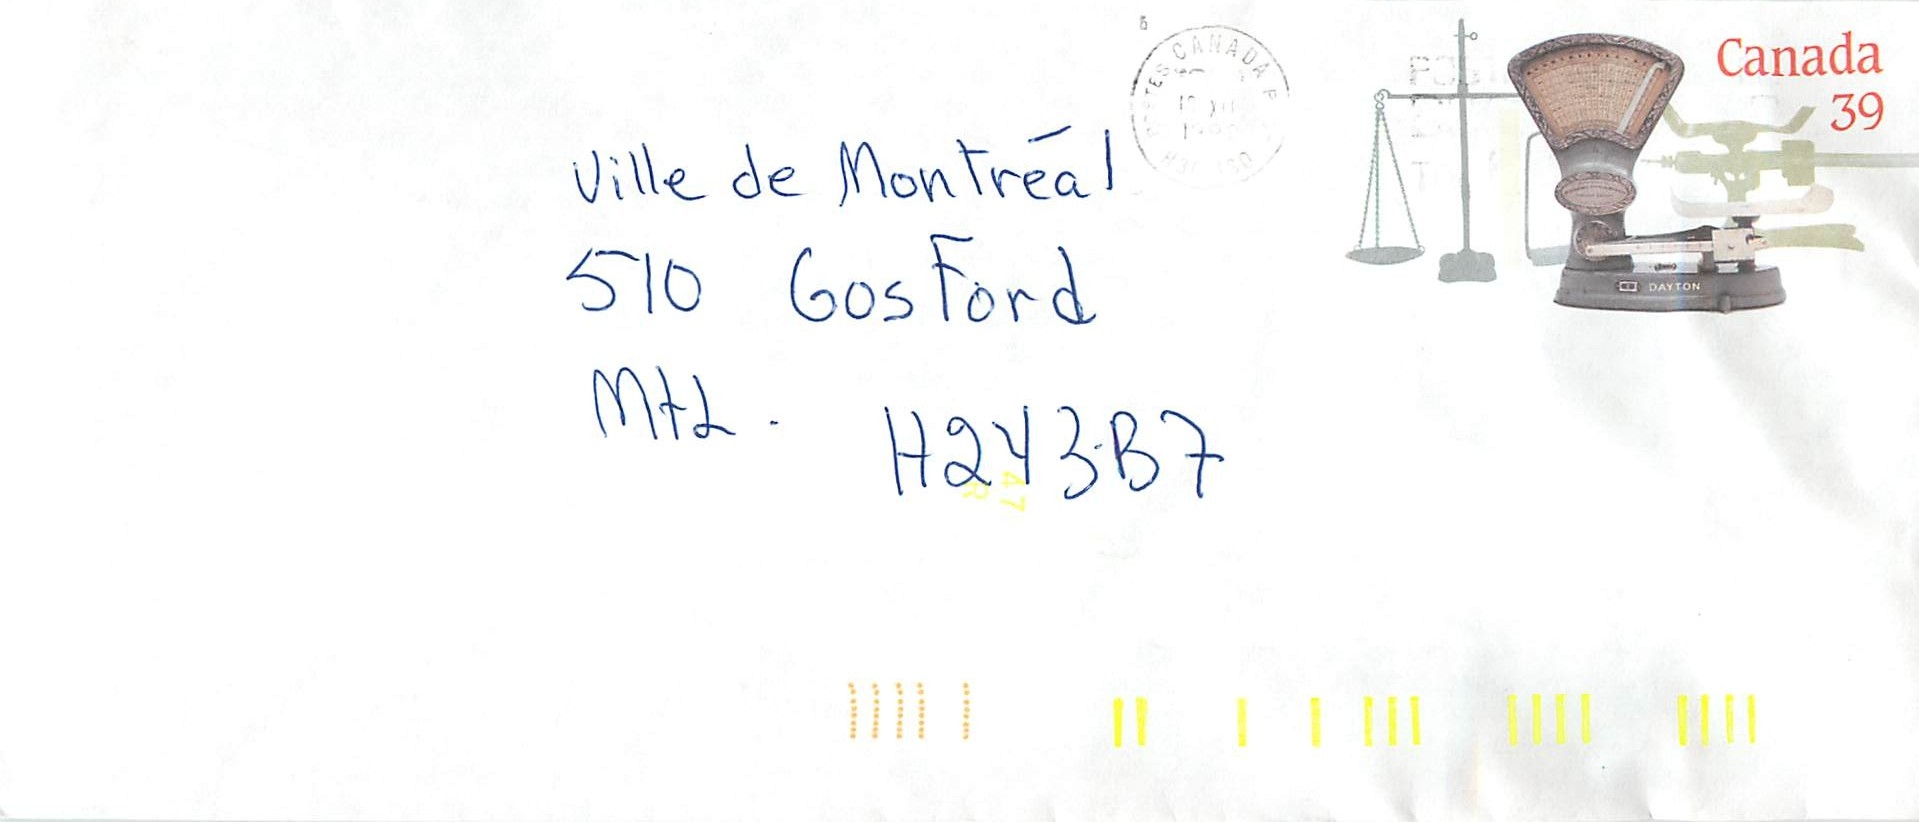 Ville de Montréal
510 Gosford
Mtl.
H2Y3B7
Canada
39
CANADA
DAYTON
47
R